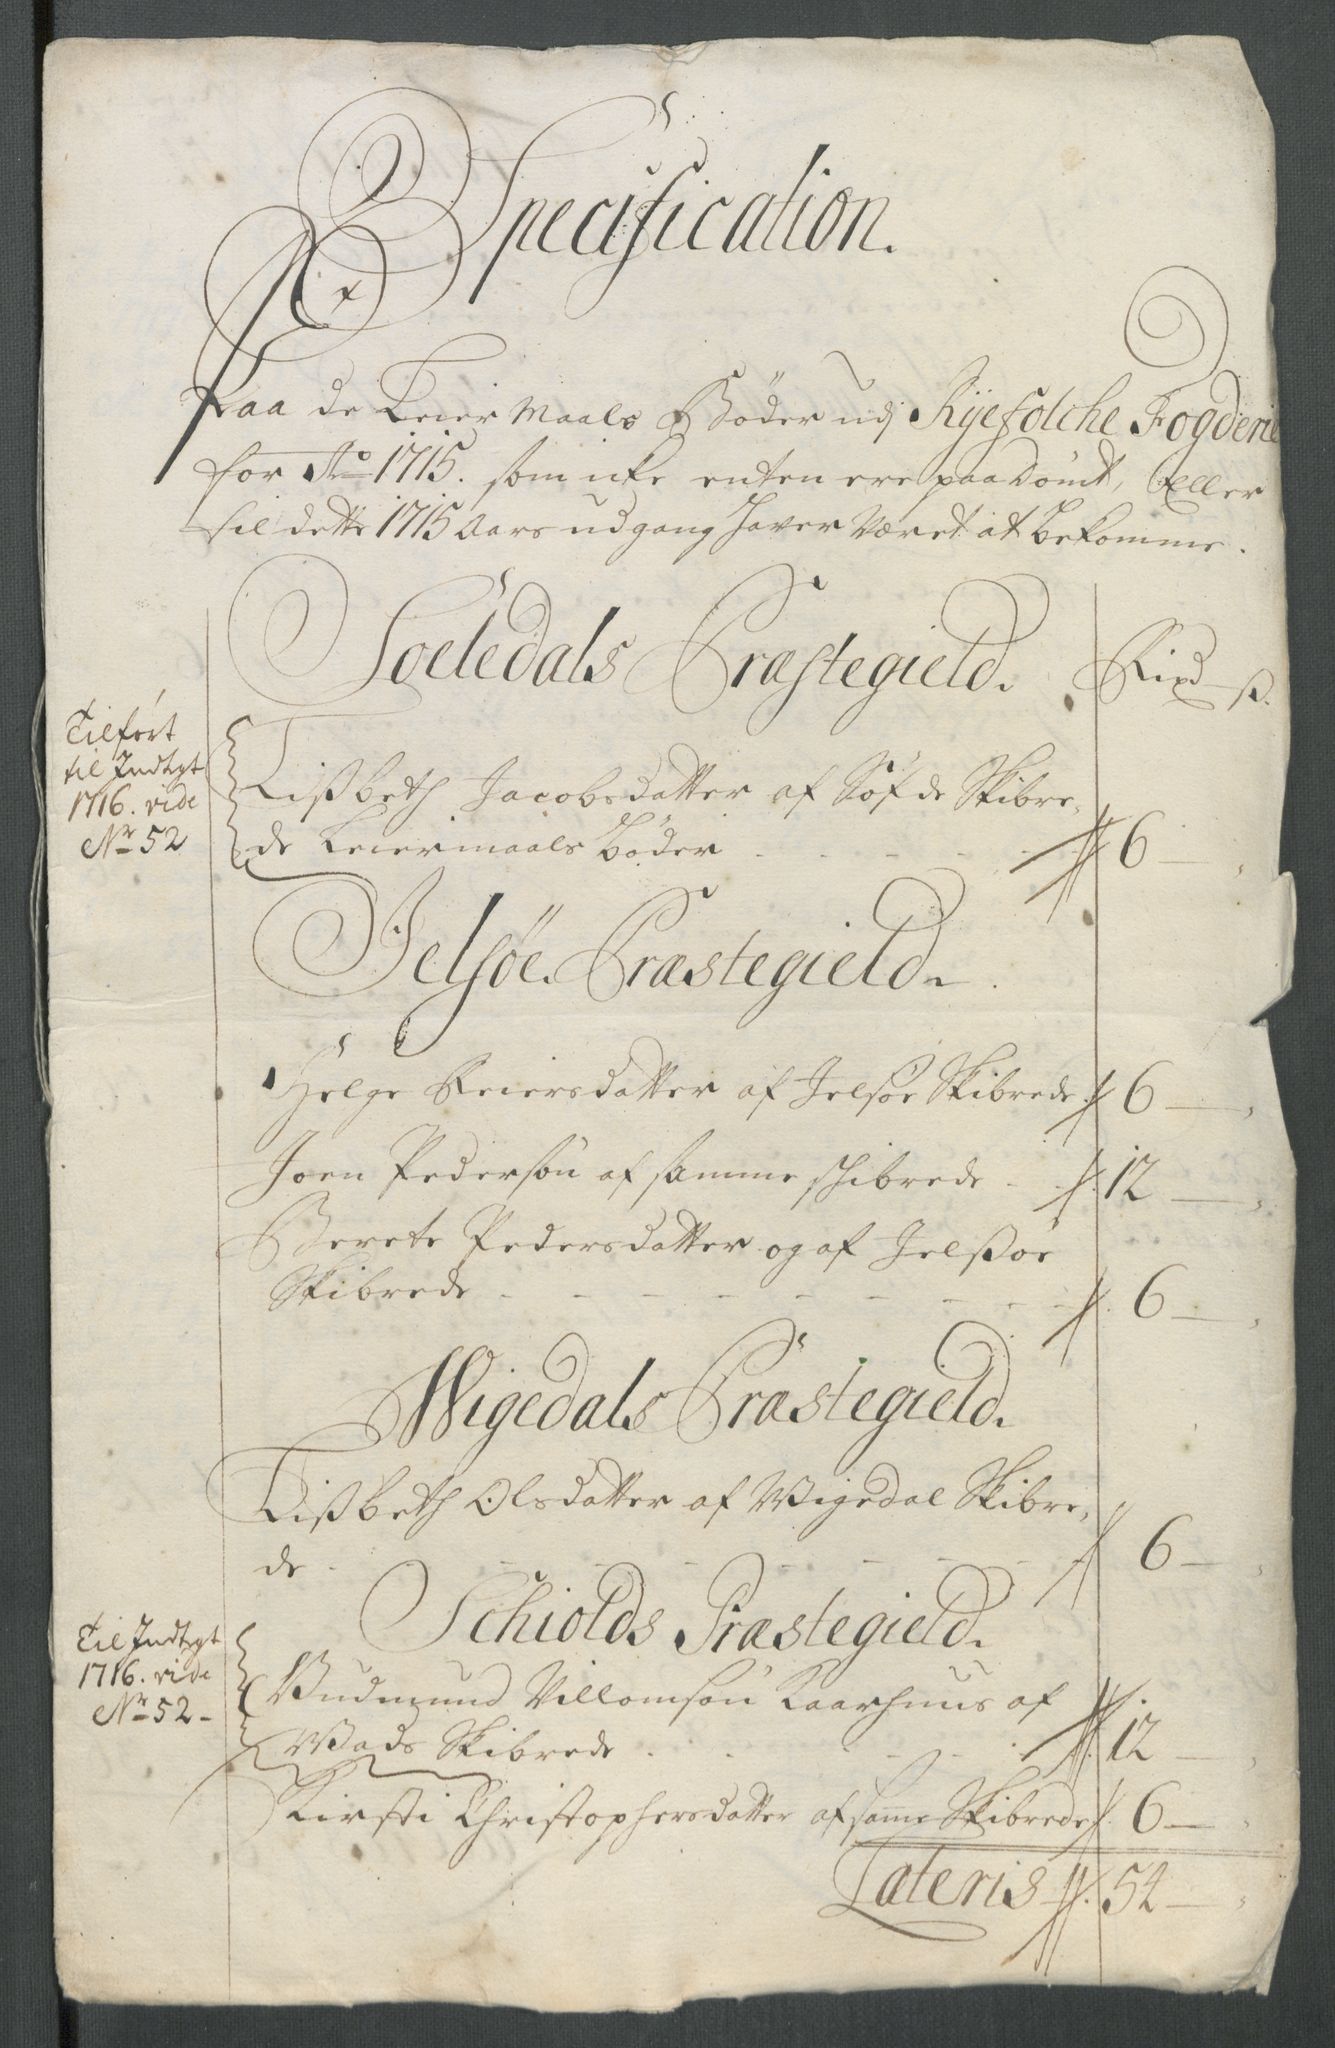 Specification.
Paa de Leiermaals Bøder udj Ryefolche Fogderie
for Ao 1715. som icke enten ere paadømt, Eller
til dette 1715 Aars udgang haver Været at bekomme.
Soeledals Præstegield. Rixd ß.
Tilført
til Indtegt
1716. vide
Nr 52
Lißbeth Jacobsdatter af Søfde Skibre-
de Leiermaals bøder - - - - - 6 —
Jelsøe Præstegield.
Helge Reiersdatter af Jelsøe Skibrede 6 —
Joen Pedersøn af samme schibrede - - 12 —
Berete Pedersdatter og af Jelßøe
Skibrede - - - - - - - - 6 —
Wigedals Præstegield.
Lißbeth Olsdatter af Wigedal Skibre-
de - - - - - - - - 6 —
Schiolds Præstegield.
Til Indtegt
1716. vide
Nr 52 -
Gudmund Villomsøn Aarhuus af
Wads Skibrede - - - - - 12 —
Kirsti Christophersdatter af samme Skibrede 6 —
Lateris 54 —